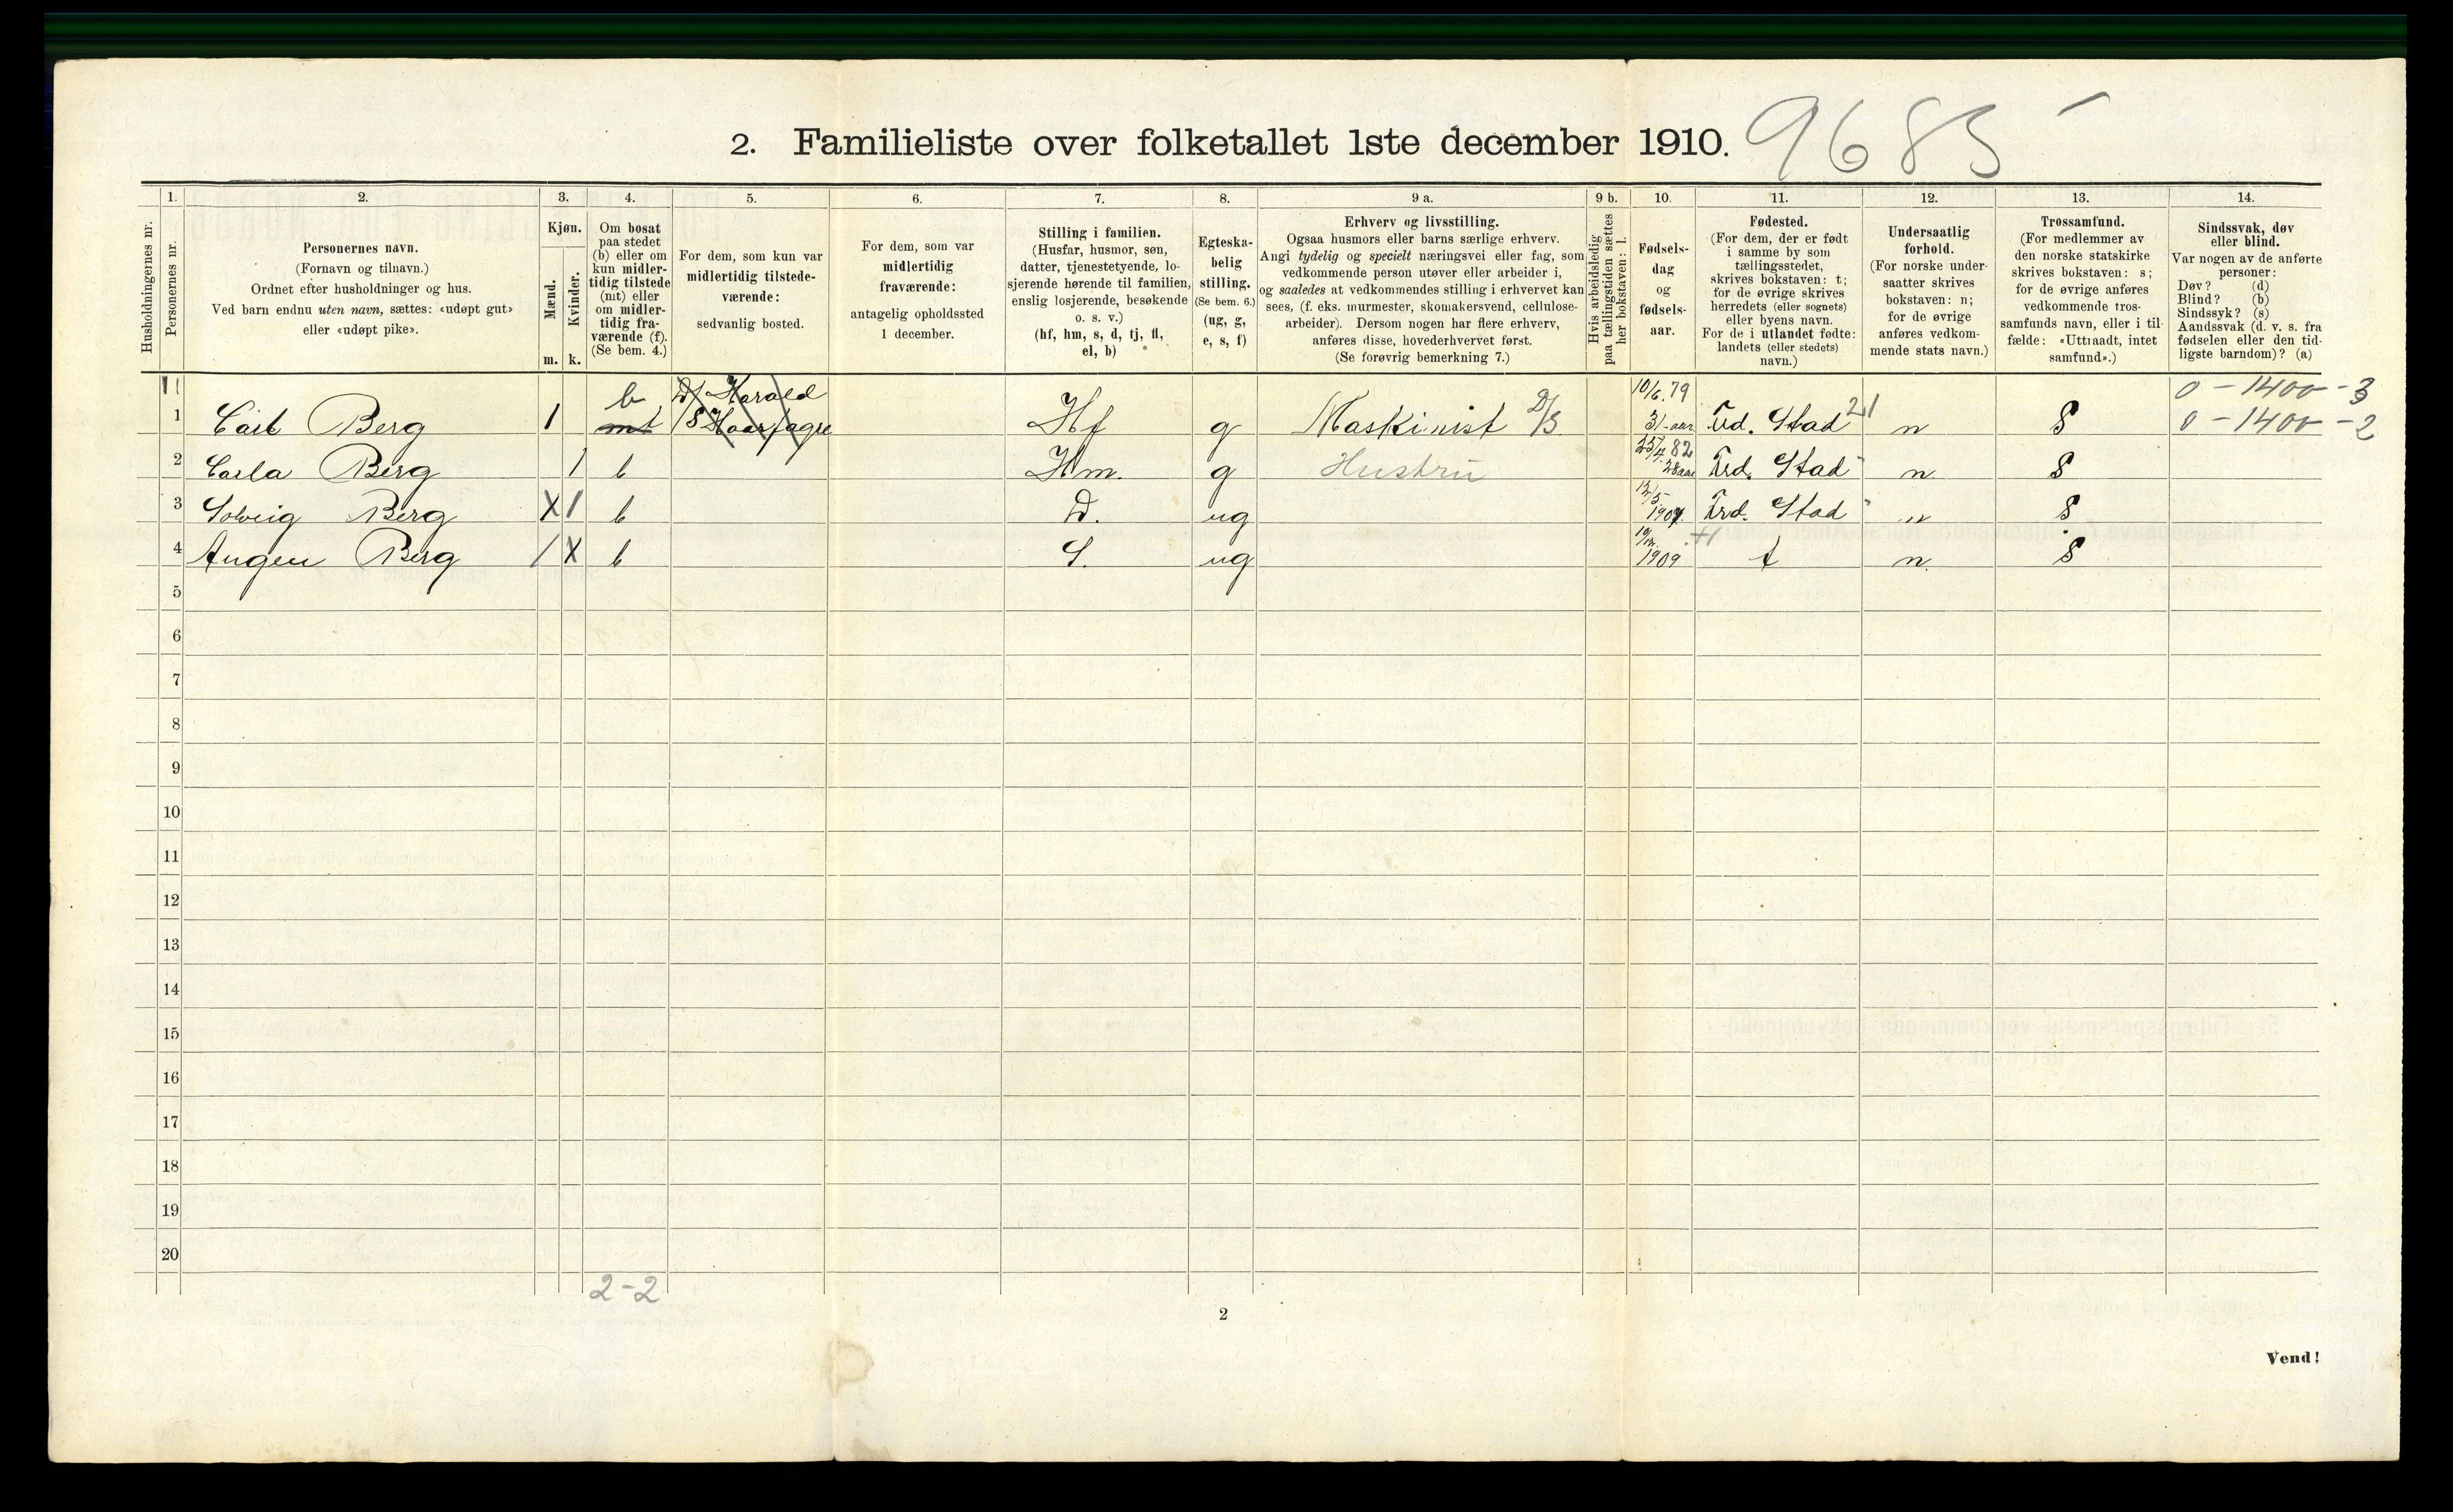 2. Familieliste over folketallet 1ste december 1910. 9685
Husholdningernes nr.
1. Personernes nr.
2. Personernes navn. (Fornavn og tilnavn.) Ordnet efter husholdninger og hus. Ved barn endnu uten navn, sættes: «udøpt gut» eller «udøpt pike».
3. Kjøn. Mænd. m. Kvinder. k.
4. Om bosat paa stedet (b) eller om kun midlertidig tilstede (mt) eller om midlertidig fraværende (f). (Se bem. 4.)
5. For dem, som kun var midlertidig tilstedeværende: sedvanlig bosted.
6. For dem, som var midlertidig fraværende: antagelig opholdssted 1 december.
7. Stilling i familien. (Husfar, husmor, søn, datter, tjenestetyende, losjerende hørende til familien, enslig losjerende, besøkende o. s. v.) (hf, hm, s, d, tj, fl, el, b)
8. Egteskabelig stilling. (Se bem. 6.) (ug, g, e, s, f)
9 a. Erhverv og livsstilling. Ogsaa husmors eller barns særlige erhverv. Angi tydelig og specielt næringsvei eller fag, som vedkommende person utøver eller arbeider i, og saaledes at vedkommendes stilling i erhvervet kan sees, (f. eks. murmester, skomakersvend, cellulosearbeider). Dersom nogen har flere erhverv, anføres disse, hovederhvervet først. (Se forøvrig bemerkning 7.)
9 b. Hvis arbeidsledig paa tællingstiden sættes her bokstaven: l.
10. Fødselsdag og fødselsaar.
11. Fødested. (For dem, der er født i samme by som tællingsstedet, skrives bokstaven: t; for de øvrige skrives herredets (eller sognets) eller byens navn. For de i utlandet fødte: landets (eller stedets) navn.)
12. Undersaatlig forhold. (For norske undersaatter skrives bokstaven: n; for de øvrige anføres vedkommende stats navn.)
13. Trossamfund. (For medlemmer av den norske statskirke skrives bokstaven: s; for de øvrige anføres vedkommende trossamfunds navn, eller i tilfælde: «Uttraadt, intet samfund».)
14. Sindssvak, døv eller blind. Var nogen av de anførte personer: Døv? (d) Blind? (b) Sindssyk? (s) Aandssvak (d. v. s. fra fødselen eller den tidligste barndom)? (a)
b D/ Harald 10/6.79 0 - 1400 - 3
1 Carl Berg 1 mt /S Haarfagre Hf g Maskinist D/S 31 aar Trd. Stad 21 n S 0 - 1400 - 2
2 Carla Berg 1 b Hm. g Hustru 25/7.82 28 aar Trd. Stad n. S
3 Solveig Berg X 1 b D. ug 12/5 1907. Trd. Stad n S
4 Augen Berg 1 X b S. ug 1909 t n. S
5
6
7
8
9
10
11
12
13
14
15
16
17
18
19
20
2-2
2
Vend!